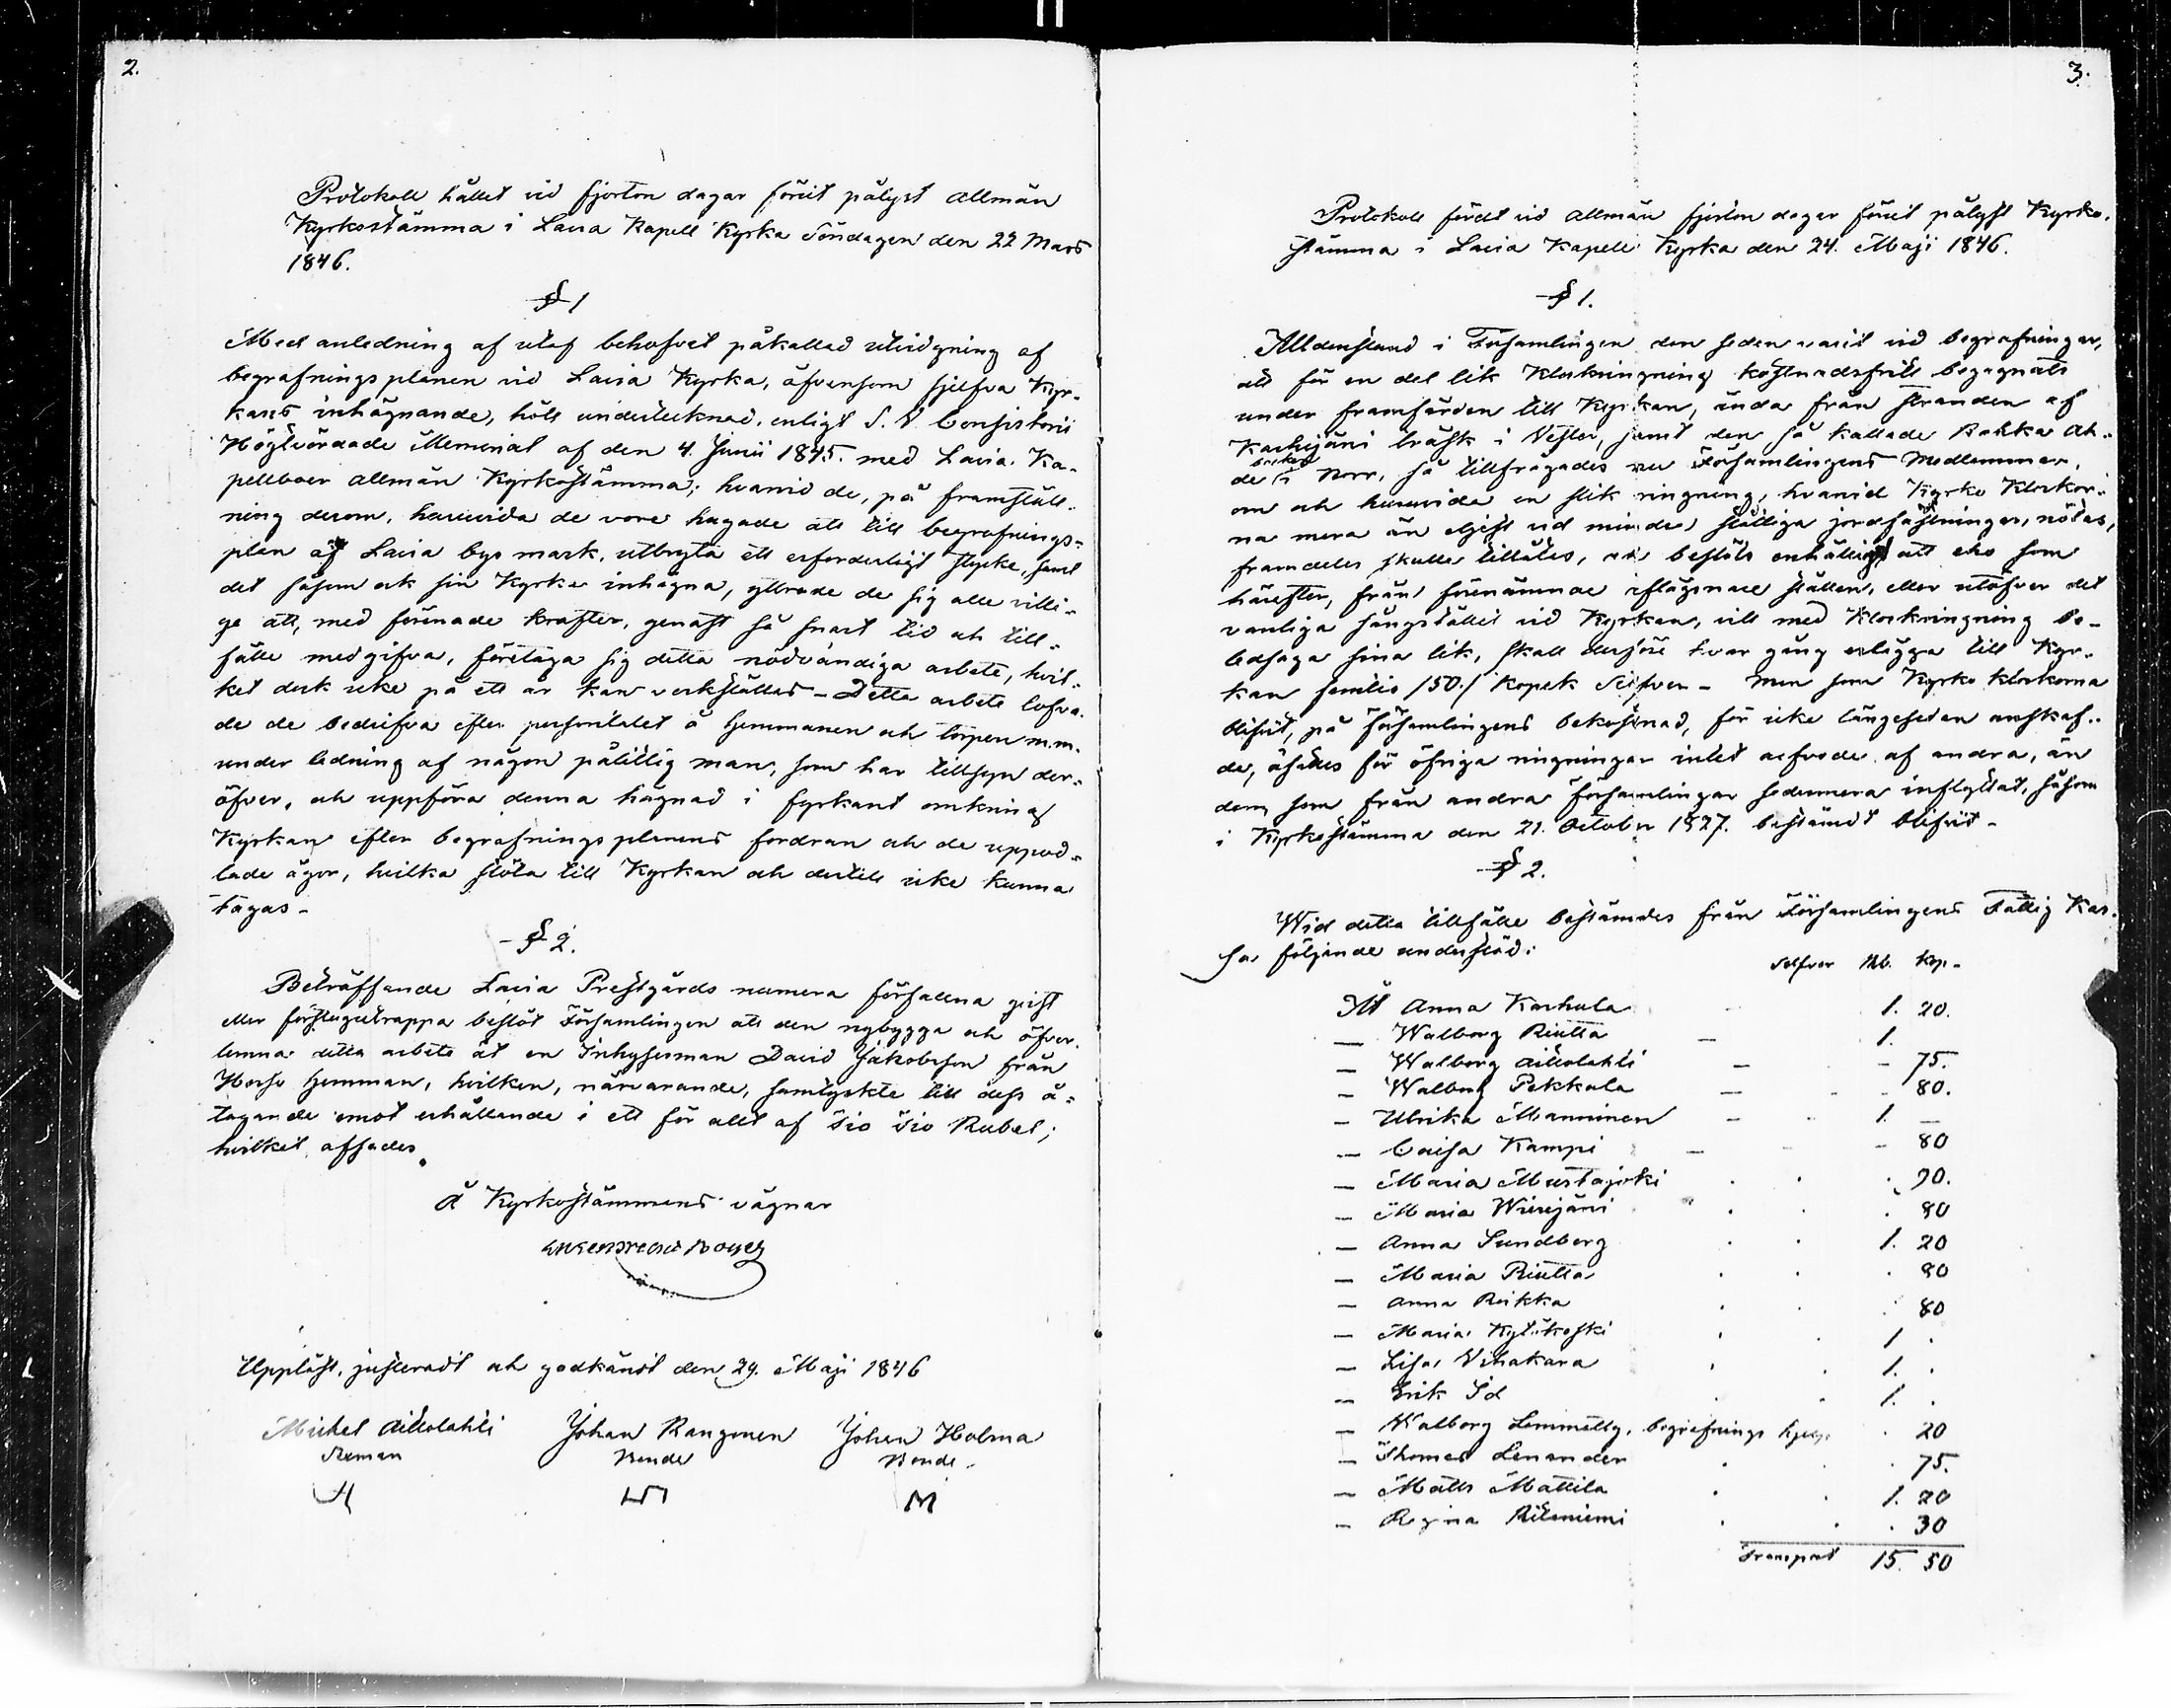 2.
Protokoll hållet vid fjorton dagar förut pålyst allmän
Kyrkostämma i Lavia Kapell Kyrka Söndagen den 22 Mars
1846.
§ 1
Med anledning af utaf behofvet påkallad utvidgning af
begrafningsplanen vid Lavia Kyrka, äfvensom sjelfva Kyr-
kans inhägnande, höll undertecknad, enligt S. V. Consistorii
Högtvördade Memorial af den 4. Junii 1845. med Lavia Ka-
pellboer allmän Kyrkostämma; hvarvid de, på framställ-
ning derom, huruvida de vore hugade att till begrafnings-
plan af Lavia bys mark, utbryta ett erforderligt stycke, samt
det såsom ock sin Kyrka inhägna, yttrade de sig alle villi-
ge att, med förenade krafter, genast så snart tid och till-
fälle medgifva, företaga sig detta nödvändiga arbete, hvil-
ket dock icke på ett år kan verkställas - Detta arbete lofva-
de de bedrifva efter personталet å hemmanen och torpen m.m.
under ledning af någon pålitlig man, som har tillsyn der-
öfver, och uppföra denna hägnad i fyrkant omkring
Kyrkan efter begrafningsplanens fordran och de uppod-
lade ägor, hvilka stöta till Kyrkan och dertill icke kunna
tagas -
§ 2.
Beträffande Lavia Prestgårds numera förfallna
eller förstugutrappa beslöt Församlingen att den nybygga och öfver-
lemna detta arbete åt en Inhysesman David Jakobsson från
hemman, hvilken, närvarande, samtyckte till dess å-
tagande emot erhållande i ett för allt af tio tio Rubel;
hvilket affades.
Å Kyrkostämmans vägnar
Uppläst, justeradt och godkändt den 24. Maji 1846
Michel Aittolahti Johan Rangonen Johan Holma
Sexman Bonde Bonde.
3.
Protokoll fördt vid allmän fjorton dagar förut pålyst Kyrko-
stämma i Lavia Kapell Kyrka den 24. Maji 1846.
§ 1.
Alldenstund i Församlingen den seden varit vid begrafningar,
att för en del lik Klockringning kostnadsfritt begagnats
under framfärden till Kyrkan, ända från stranden af
Karhijärvi träsk i Vester, samt den så kallade
backen
de i Norr, så tillfrågades nu Församlingens Medlemmar,
om och huruvida en slik ringning, hvarvid Kyrko Klockor-
na mera än eljest vid mindre ringningar, nötas,
framdeles skulle tillåtas, och beslöts enhälligt att hvo som
härefter, från förenämnde aflägsnare ställen, eller utöfver det
vanliga sångstället vid Kyrkan, vill med Klockringning be-
ledsaga sina lik, skall derföre hvar gång erlägga till Kyr-
kan femtio /50./ Kopek Silfver - Men som Kyrko klockorna
blifvit, på Församlingens bekostnad, för icke längesedan anskaf-
de, äskades för öfriga ringningar intet arfvode af andra, än
dem som från andra församlingar sednmera inflyttat, såsom
i Kyrkostämma den 21. October 1827. bestämdt blifvit -
§ 2.
Wid detta tillfälle bestämdes från Församlingens Fattig Kas-
sa följande understöd:
Silfver Rb. Kop.
Åt Anna Karhula 1. 20.
— Walborg Riutta — 1.
— Walborg Aittolahti — - 75.
— Walborg Pekkala — - - 80.
— Ulrika Manninen - - 1. —
— Caisa Kampi — - - 80
— Maria Mustajoki . . . 90.
— Maria Wirrijärvi . . . 80
— Anna Sundberg . . 1. 20
— Maria Riutta . . . 80
— Anna Reikka . . . 80
— Maria Kyläkoski . . 1 .
— Lisa Vihakara . . 1. .
— Erik Id . . 1. .
— Walborg Lemmetty, begrafnings hjelp . 20
— Thomas Lenander . . . 75.
— Matts Mattila . . 1. 20
— Regina Riitaniemi . . . 30
Transport 15. 50